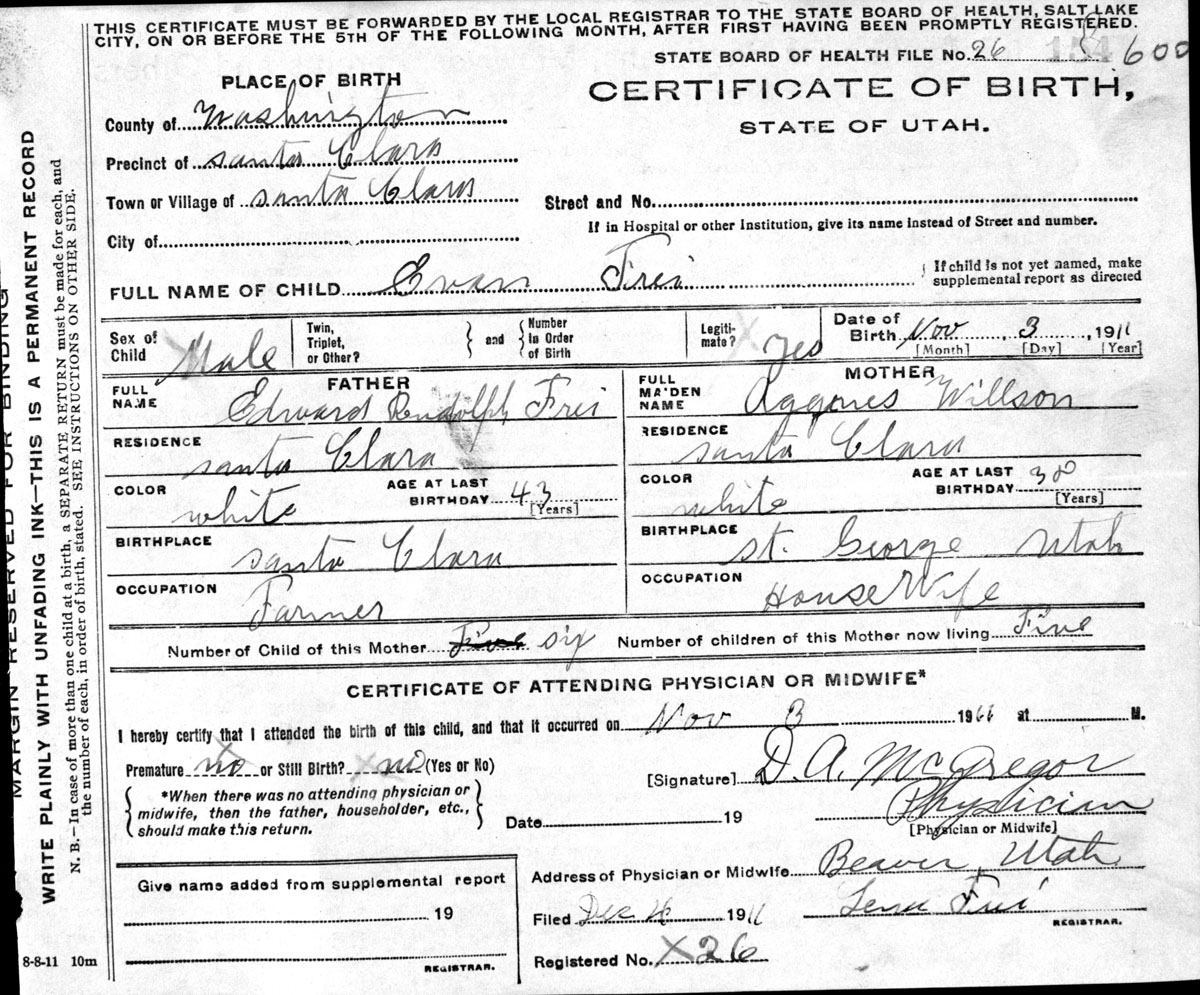 THIS CERTIFICATE MUST BE FORWARDED BY THE LOCAL REGISTRAR TO THE STATE BOARD OF HEALTH, SALT LAKE
CITY, ON OR BEFORE THE 5TH OF THE FOLLOWING MONTH, AFTER FIRST HAVING BEEN PROMPTLY REGISTERED.
STATE BOARD OF HEALTH FILE No. 26 600
PLACE OF BIRTH
CERTIFICATE OF BIRTH,
STATE OF UTAH.
County of Washington
Precinct of Santa Clara
Town or Village of Santa Clara
Street and No.
If in Hospital or other Institution, give its name instead of Street and number.
City of
FULL NAME OF CHILD Evan Frei
If child is not yet named, make
supplemental report as directed
Sex of Child Male
Twin, Triplet, or Other?
and
Number in Order of Birth
Legiti-mate? Yes
Date of Birth Nov 3, 1911
[Month] [Day] [Year]
FATHER
FULL NAME Edward Rudolph Frei
RESIDENCE Santa Clara
COLOR white
AGE AT LAST BIRTHDAY 43
[Years]
BIRTHPLACE Santa Clara
OCCUPATION Farmer
MOTHER
FULL MAIDEN NAME Aggnes Willson
RESIDENCE Santa Clara
COLOR white
AGE AT LAST BIRTHDAY 38
[Years]
BIRTHPLACE St. George Utah
OCCUPATION House Wife
Number of Child of this Mother Five six Number of children of this Mother now living Five
CERTIFICATE OF ATTENDING PHYSICIAN OR MIDWIFE*
I hereby certify that I attended the birth of this child, and that it occurred on Nov 3 19 at M.
Premature no or Still Birth? no (Yes or No)
*When there was no attending physician or
midwife, then the father, householder, etc.,
should make this return.
[Signature] D. A. McGregor
Physician
Date 19
[Physician or Midwife]
Address of Physician or Midwife Beaver, Utah
Give name added from supplemental report
19
REGISTRAR.
Filed Dec 1911
Lena Frei
REGISTRAR.
Registered No. X 26
8-8-11 10m
MARGIN RESERVED FOR BINDING
WRITE PLAINLY WITH UNFADING INK—THIS IS A PERMANENT RECORD
N. B.—In case of more than one child at a birth, a SEPARATE RETURN must be made for each, and
the number of each, in order of birth, stated. SEE INSTRUCTIONS ON OTHER SIDE.